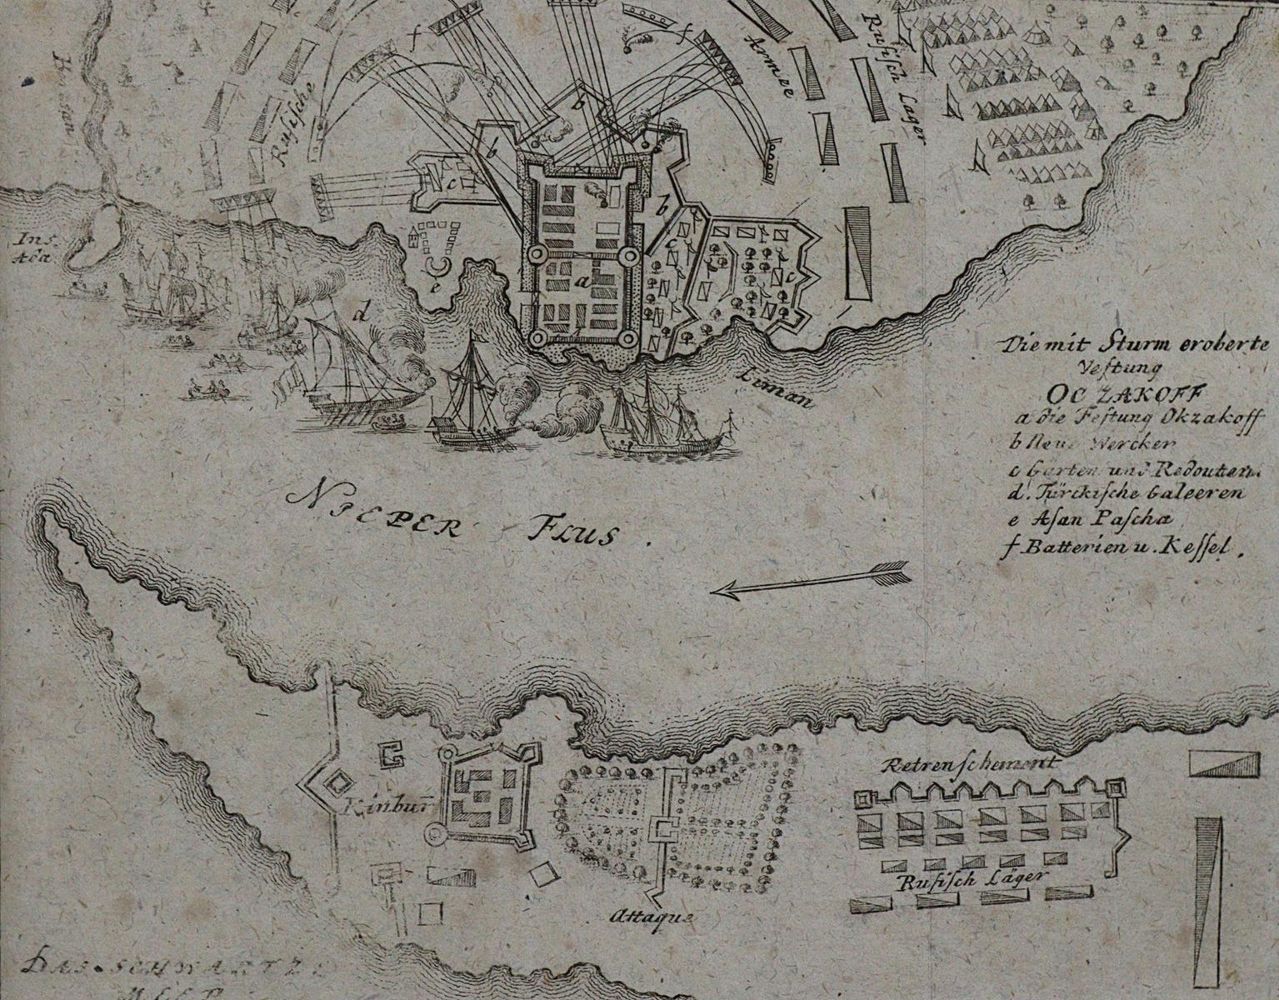 Rusische
Armee
Rusisch Lager
f
f
b
b
b
c
c
c
a
d
e
Ins.
Liman
Die mit Sturm eroberte
Vestung
OCZAKOFF
a die Festung Okzakoff
b Neue Wercker
c Garten und Redouten.
d. Türckische Galeeren
e Asan Pascha
f. Batterien u. Kessel.
NIEPER FLUS.
Kinbur̄
Retrenschement
Rusisch Läger
Attaque
DAS SCHWARTZE
MEER